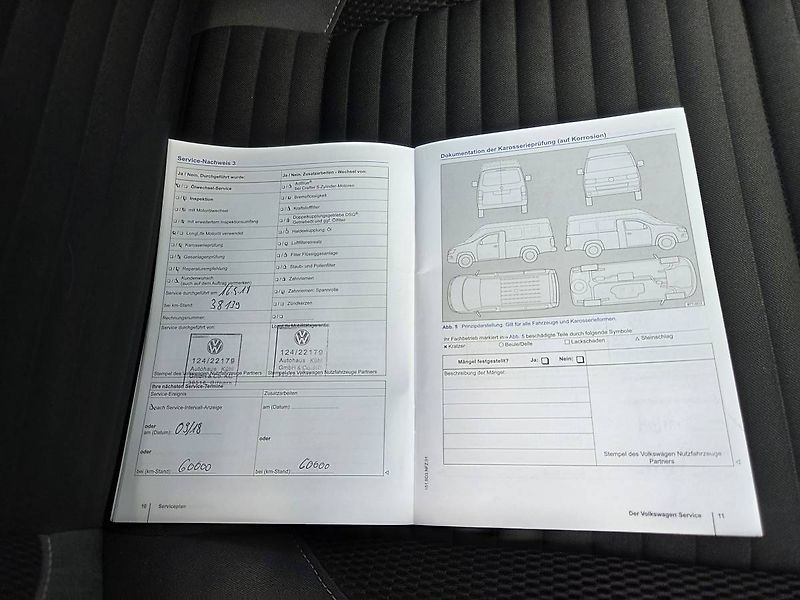 Service-Nachweis 3
Ja / Nein, Durchgeführt wurde:
Ölwechsel-Service
Inspektion
mit Motorölwechsel
mit erweitertem Inspektionsumfang
LongLife Motoröl verwendet
Karosserieprüfung
Gasanlagenprüfung
Reparaturempfehlung
Kundenwunsch
(auch auf dem Auftrag vermerken)
Service durchgeführt am:
bei km-Stand: 38139
Rechnungsnummer:
Service durchgeführt von:
124/22179
Autohaus Kühl
GmbH & Co. KG
Stempel des Volkswagen Nutzfahrzeuge Partners
Ja / Nein, Zusatzarbeiten - Wechsel von:
AdBlue®
bei Crafter 5-Zylinder-Motoren
Bremsflüssigkeit
Kraftstofffilter
Doppelkupplungsgetriebe DSG®
Getriebeöl und ggf. Ölfilter
Haldexkupplung: Öl
Luftfiltereinsatz
Filter Flüssiggasanlage
Staub- und Pollenfilter
Zahnriemen
Zahnriemen: Spannrolle
Zündkerzen
LongLife Mobilitätsgarantie:
124/22179
Autohaus Kühl
GmbH & Co. KG
Stempel des Volkswagen Nutzfahrzeuge Partners
Ihre nächsten Service-Termine
Service-Ereignis
Zusatzarbeiten
nach Service-Intervall-Anzeige
oder
am (Datum): 09/18
oder
bei (km-Stand): 60000
am (Datum):
oder
bei (km-Stand): 60000
10 Serviceplan
Dokumentation der Karosserieprüfung (auf Korrosion)
Abb. 5 Prinzipdarstellung. Gilt für alle Fahrzeuge und Karosserieformen.
Ihr Fachbetrieb markiert in » Abb. 5 beschädigte Teile durch folgende Symbole:
× Kratzer ○ Beule/Delle □ Lackschaden △ Steinschlag
Mängel festgestellt? Ja: Nein:
Beschreibung der Mängel:
Stempel des Volkswagen Nutzfahrzeuge
Partners
Der Volkswagen Service 11